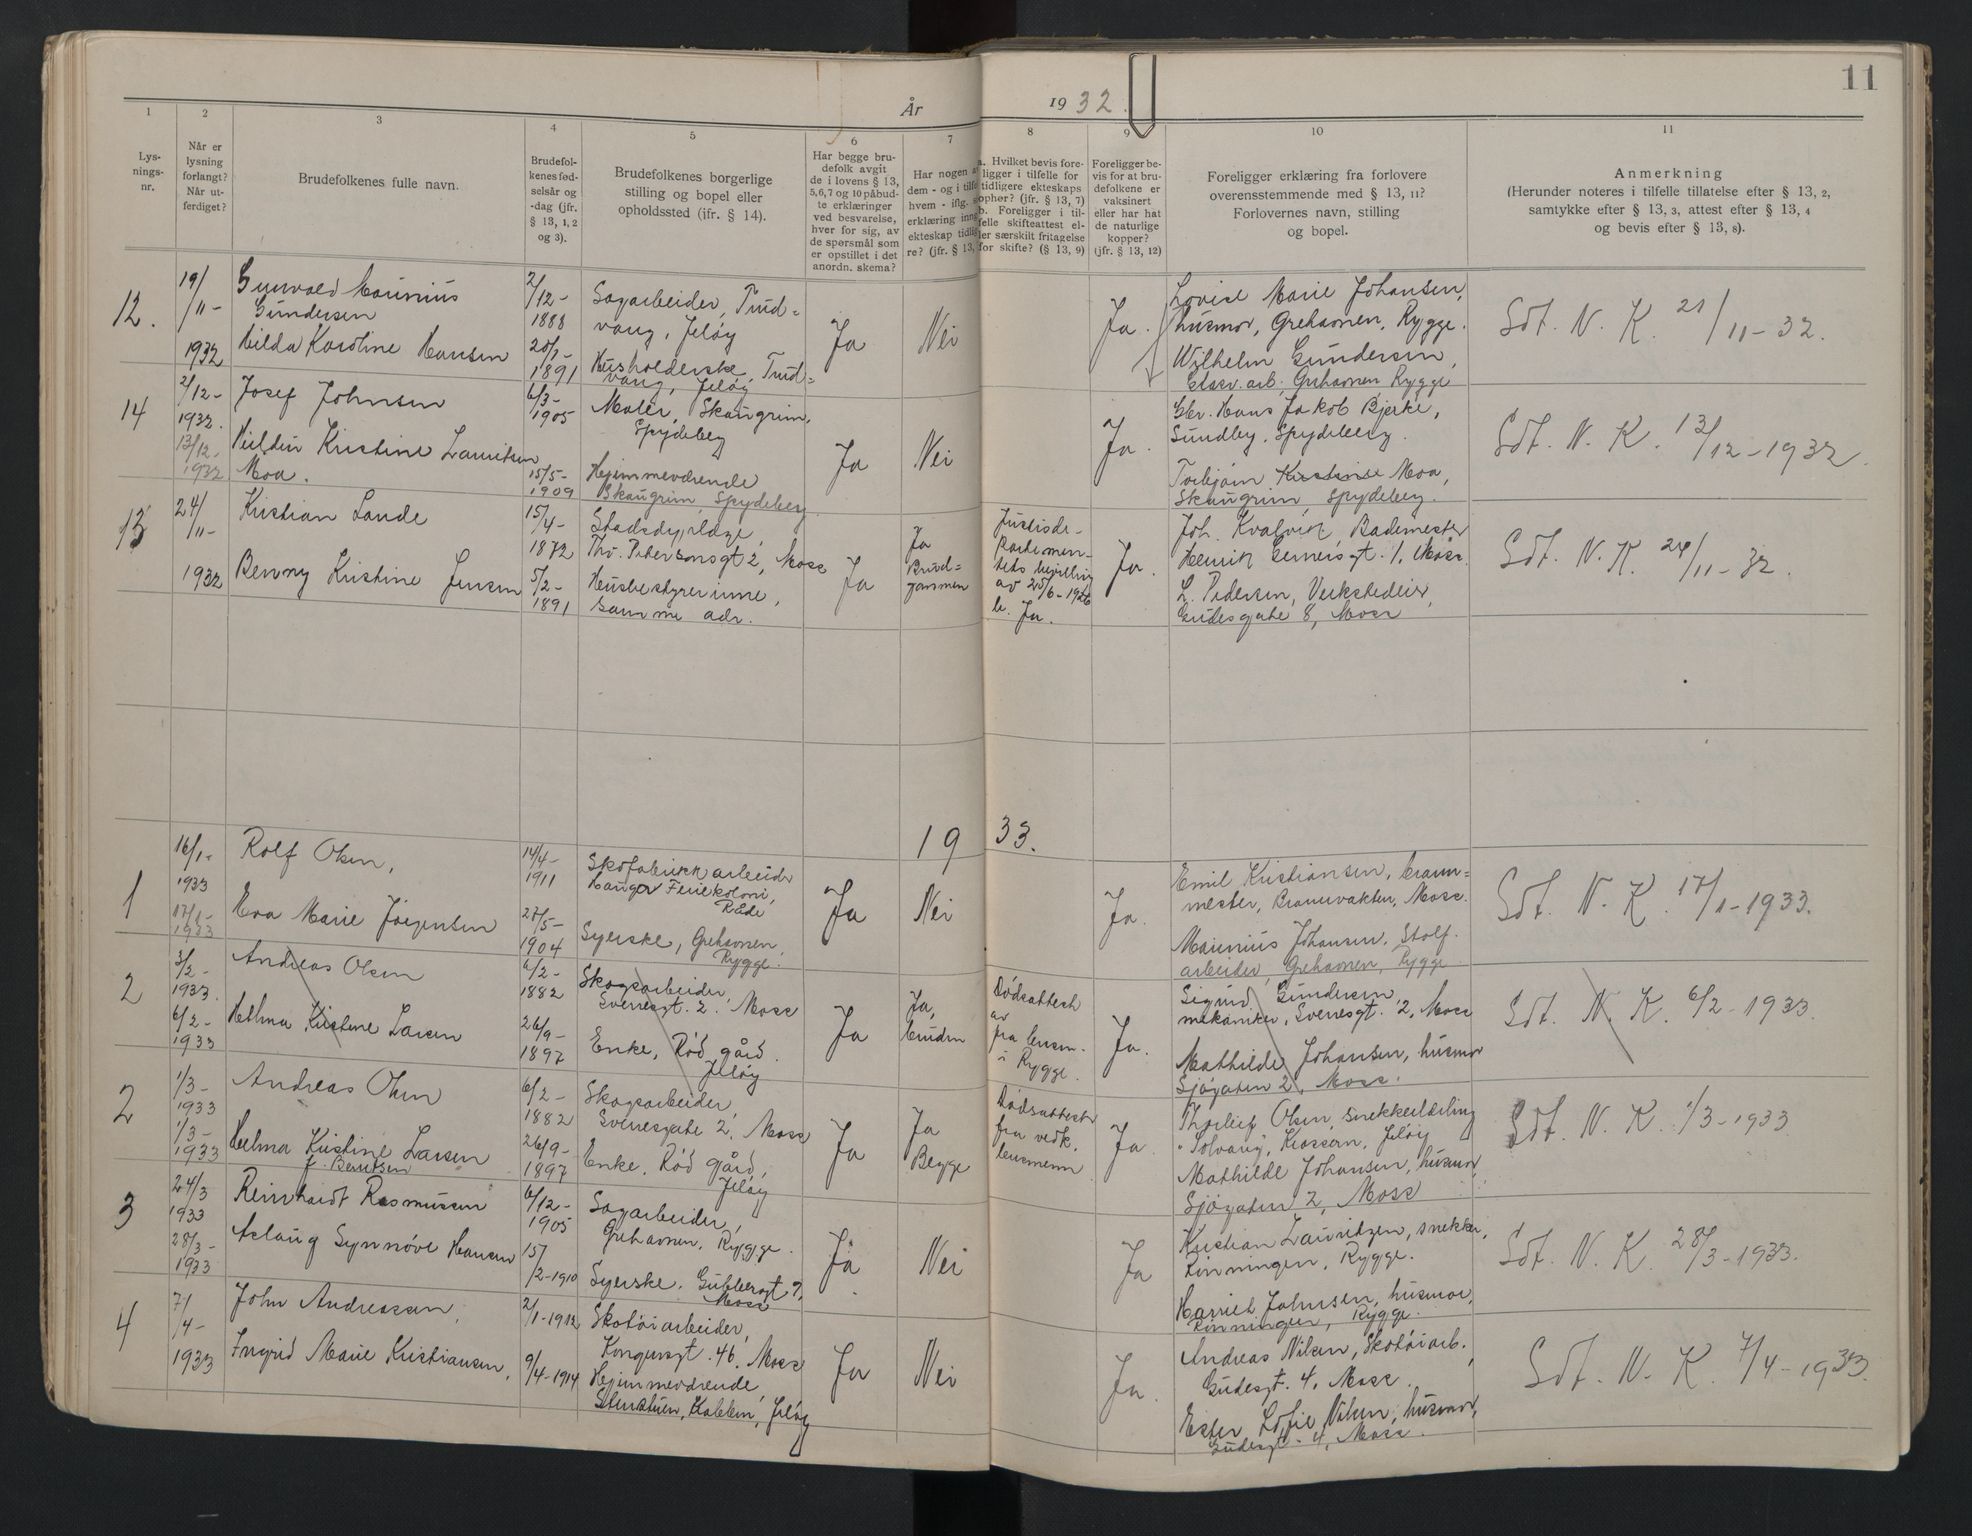 11
År 1932.
1
Lys-
nings-
nr.
2
Når er
lysning
forlangt?
Når ut-
ferdiget?
3
Brudefolkenes fulle navn.
4
Brudefol-
kenes fød-
selsår og
-dag (jfr.
§ 13, 1, 2
og 3).
5
Brudefolkenes borgerlige
stilling og bopel eller
opholdssted (ifr. § 14).
6
Har begge bru-
defolk avgit
de i lovens § 13,
5,6,7 og 10 påbud-
te erklæringer
ved besvarelse,
hver for sig, av
de spørsmål som
er opstillet i det
anordn. skema?
7
Har nogen a
dem - og i tilfe
hvem - iflg.
erklæring inng
ekteskap tidli
re? (jfr. § 13,
8
a. Hvilket bevis fore-
ligger i tilfelle for
tidligere ekteskaps
ophør? (jfr. § 13, 7)
b. Foreligger i til-
felle skifteattest el-
ler særskilt fritagelse
for skifte? (§ 13, 9)
9
Foreligger be-
vis for at bru-
defolkene er
vaksinert
eller har hat
de naturlige
kopper?
(jfr. § 13, 12)
10
Foreligger erklæring fra forlovere
overensstemmende med § 13, 11?
Forlovernes navn, stilling
og bopel.
11
Anmerkning
(Herunder noteres i tilfelle tillatelse efter § 13, 2,
samtykke efter § 13, 3, attest efter § 13, 4
og bevis efter § 13, 8).
12.
19/
/11-
1932
Gunvald Marinius
Gundersen
Hilda Karoline Hansen
2/
/12-
1888
20/1-
1891
Sagarbeider, Trud-
vang, Jeløy
Husholderske, Trud-
vang, Jeløy
Ja
Nei
Ja.
Lovise Marie Johansen,
husmor, Grehavnen, Rygge.
Wilhelm Gundersen,
arb., Grehavnen Rygge
Sdt. N. K. 21/11-32.
14
2/12-
1932.
13/12-
1932
Josef Johnsen
Kristine Lauritsen
Moa.
6/3-
1905
15/5-
1909
Maler, Skaugrim,
Spydeberg
Hjemmeværende
Skaugrim, Spydeberg.
Ja
Nei
Ja.
Gbr. Hans Jakob Bjerke,
Sundby, Spydeberg.
Torbjørn Kristine Moa,
Skaugrim, Spydeberg.
Sdt. N. K. 13/12-1932.
13
24/
11-
1932
Kristian Lande
Benny Kristine Jensen
15/
4-
1872
5/2-
1891
Stadsdyrlæge,
Thv. Petersonsgt 2, Moss
Husbestyrerinne,
samme adr.
Ja
Ja
Brud-
gommen
Justisde-
partemen-
tets bevilling
av 25/6-1926
b. Ja.
Ja.
Joh. Kvalvik, Bademester
Henrik Gernersgt. 1, Moss.
L. Pedersen, Verkstedeier,
Gudesgate 8, Moss
Sdt. N. K. 24/11-32.
1933.
1
16/1-
1933
17/1-
1933
Rolf Olsen,
Eva Marie Jørgensen
14/4-
1911
27/5-
1904
Skofabrikkarbeider
Hauger Feriekoloni,
Råde
Syerske, Grehavnen,
Rygge.
Ja
Nei
Ja.
Emil Kristiansen, brann-
mester, Brannvakten, Moss.
Marinius Johansen, Stolf.
arbeider, Grehavnen, Rygge
Sdt. N. K. 17/1-1933.
2
3/2-
1933.
6/2-
1933
Andreas Olsen
Helma Kristine Larsen
6/2-
1882
26/9-
1897
Skogsarbeider,
Sverresgt. 2. Moss
Enke, Rød gård.
Jeløy
Ja
Ja,
bruden
Dødsattest
av
fra lensm.
i Rygge.
Ja.
Sigurd Gundersen,
mekaniker, Sverresgt. 2, Moss
Mathilde Johansen, husmor
Sjøgaten 2, Moss.
Sdt. N. K. 6/2-1933.
2
1/3-
1933
1/3-
1933
Andreas Olsen
Helma Kristine Larsen
f. Berntsen
6/2-
1882
26/9-
1897
Skogsarbeider,
Sverresgate 2, Moss
Enke, Rød gård,
Jeløy
Ja
Ja
Begge
Dødsattest
fra vedk.
lensmenn
Ja.
Thorleif Olsen, snekkerlærling
"Solvang", Krossern, Jeløy
Mathilde Johansen, husmor,
Sjøgaten 2, Moss
Sdt. N. K. 1/3-1933
3
24/3
1933
28/3-
1933
Reinhardt Rasmussen
Aslaug Synnøve Hansen
6/12-
1905
15/
/2-1910
Sagarbeider,
Grehavnen, Rygge.
Syerske. Gubbergt 9,
Moss
Ja
Nei
Ja
Kristian Lauritzen, snekker,
Rinningen, Rygge.
Harriet Johnsen, husmor,
Rinningen, Rygge.
Sdt. N. K. 28/3-1933.
4
7/
/4-
1933
John Andreassen,
Ingrid Marie Kristiansen,
2/1-1912
9/4-1914
Skotøiarbeider,
Kongensgt. 46. Moss
Hjemmeværende,
Stenstuen, Kallum, Jeløy
Ja
Nei
Ja.
Andreas Nilsen, Skotøiarb.,
Gudesgt. 4, Moss.
Ester Sofie Nilsen, husmor,
Gudesgt. 4, Moss.
Sdt. N. K. 7/4-1933.